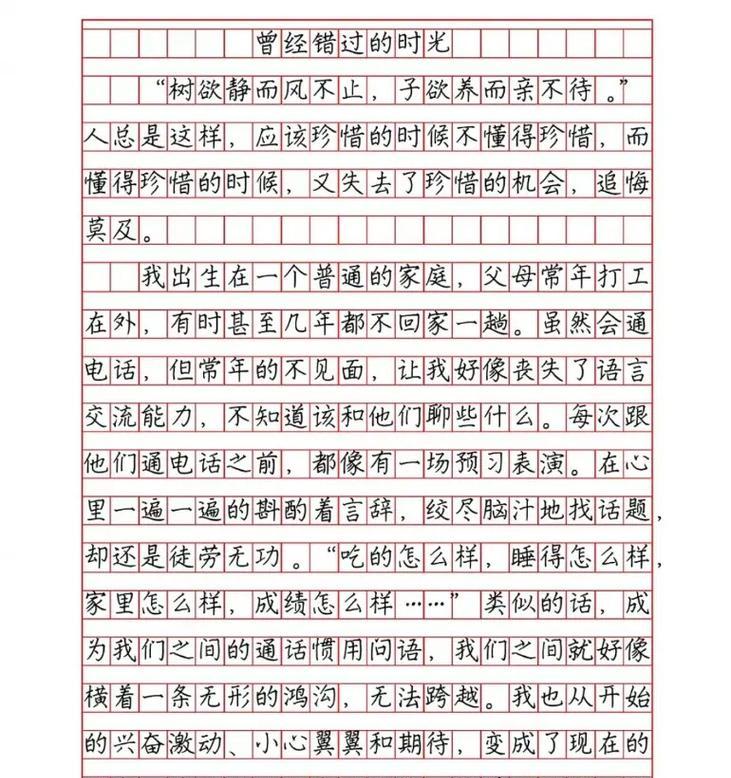 曾经错过的时光
“树欲静而风不止，子欲养而亲不待。”
人总是这样，应该珍惜的时候不懂得珍惜，而
懂得珍惜的时候，又失去了珍惜的机会，追悔
莫及。
我出生在一个普通的家庭，父母常年打工
在外，有时甚至几年都不回家一趟。虽然会通
电话，但常年的不见面，让我好像丧失了语言
交流能力，不知道该和他们聊些什么。每次跟
他们通电话之前，都像有一场预习表演。在心
里一遍一遍的斟酌着言辞，绞尽脑汁地找话题，
却还是徒劳无功。“吃的怎么样，睡得怎么样，
家里怎么样，成绩怎么样……”类似的话，成
为我们之间的通话惯用问语，我们之间就好像
横着一条无形的鸿沟，无法跨越。我也从开始
的兴奋激动、小心翼翼和期待，变成了现在的